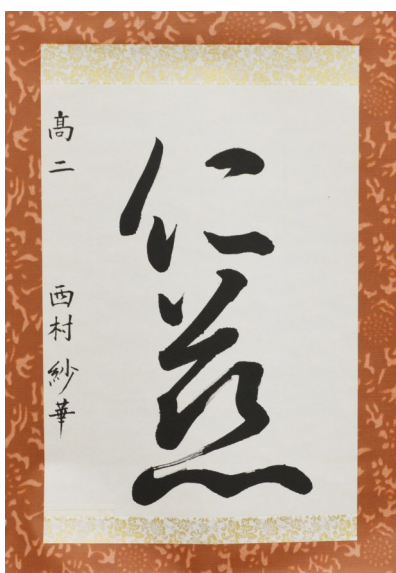 仁慈
髙二 西村紗華